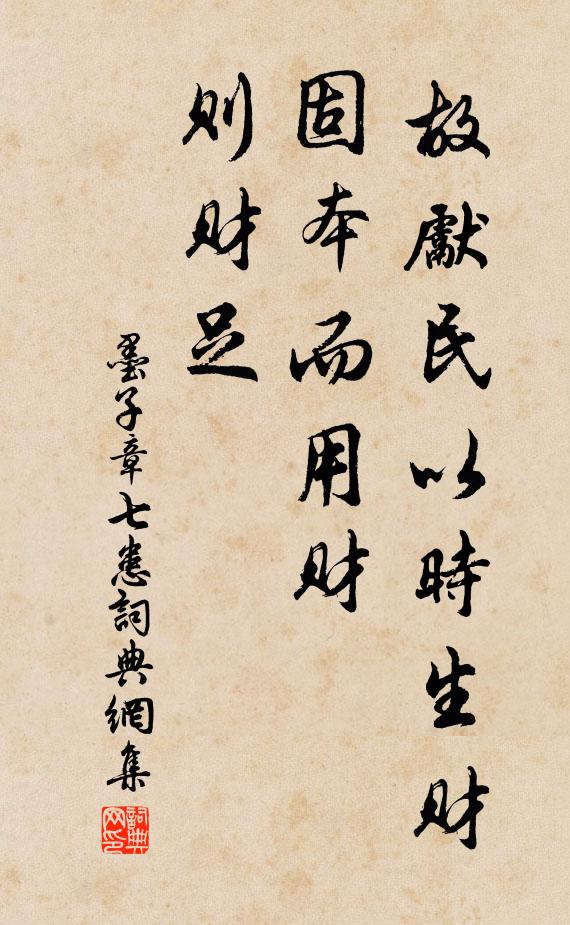 故獻民以時生財
固本而用財
則財足
墨子章七患詞典網集
詞典
网印